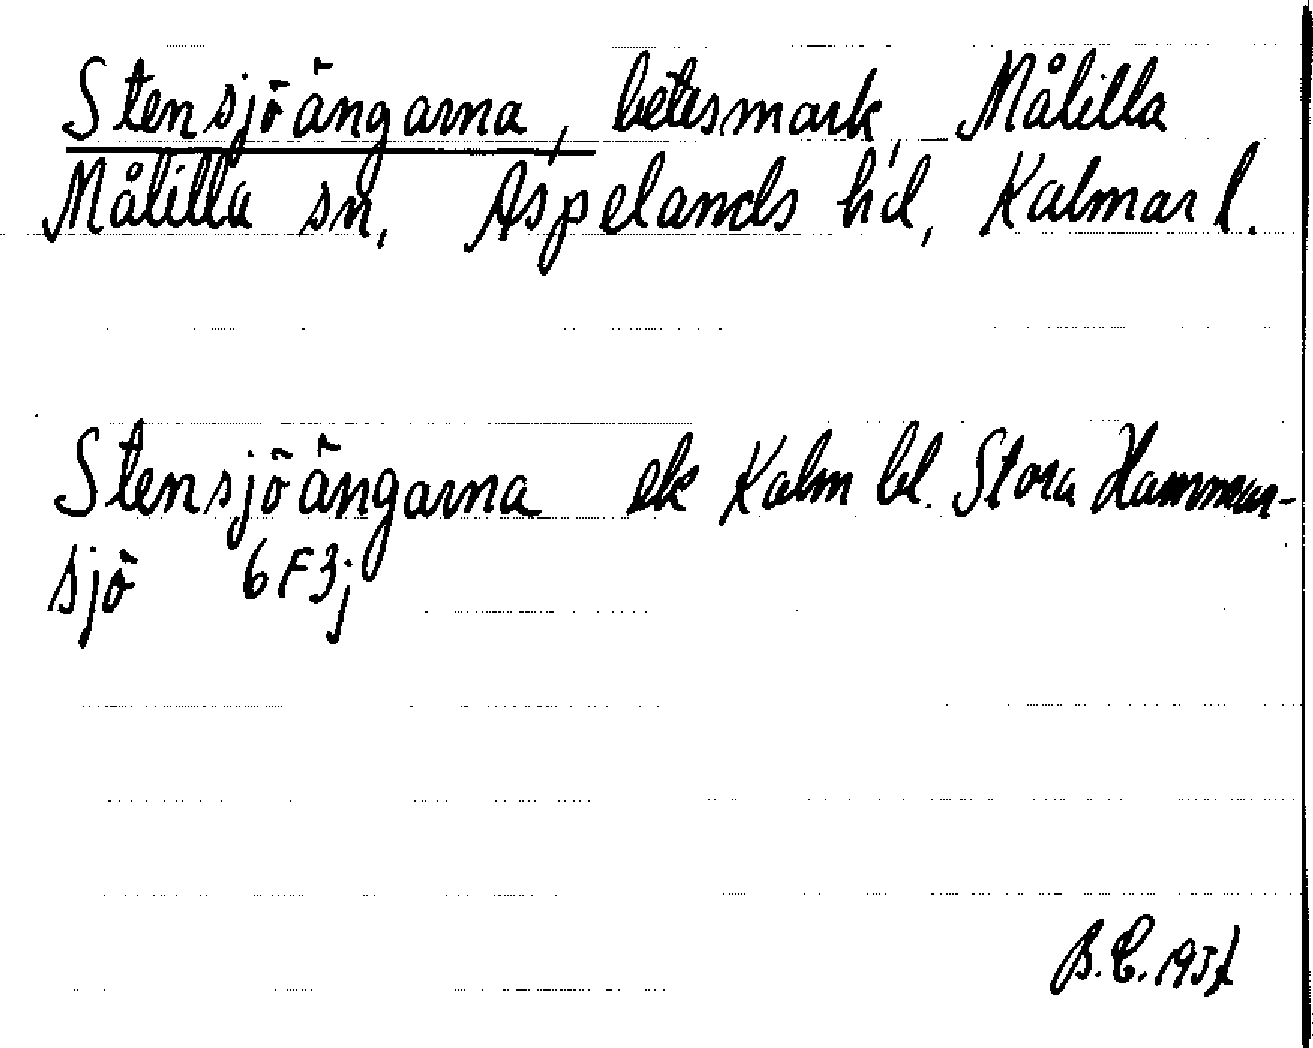 Stensjöängarna, betesmark, Målilla
Målilla sn, Aspelands hd, Kalmar l.
Stensjöängarna ek Kalm bl. Stora Hammar-
sjö 6F3j
B.E. 1957